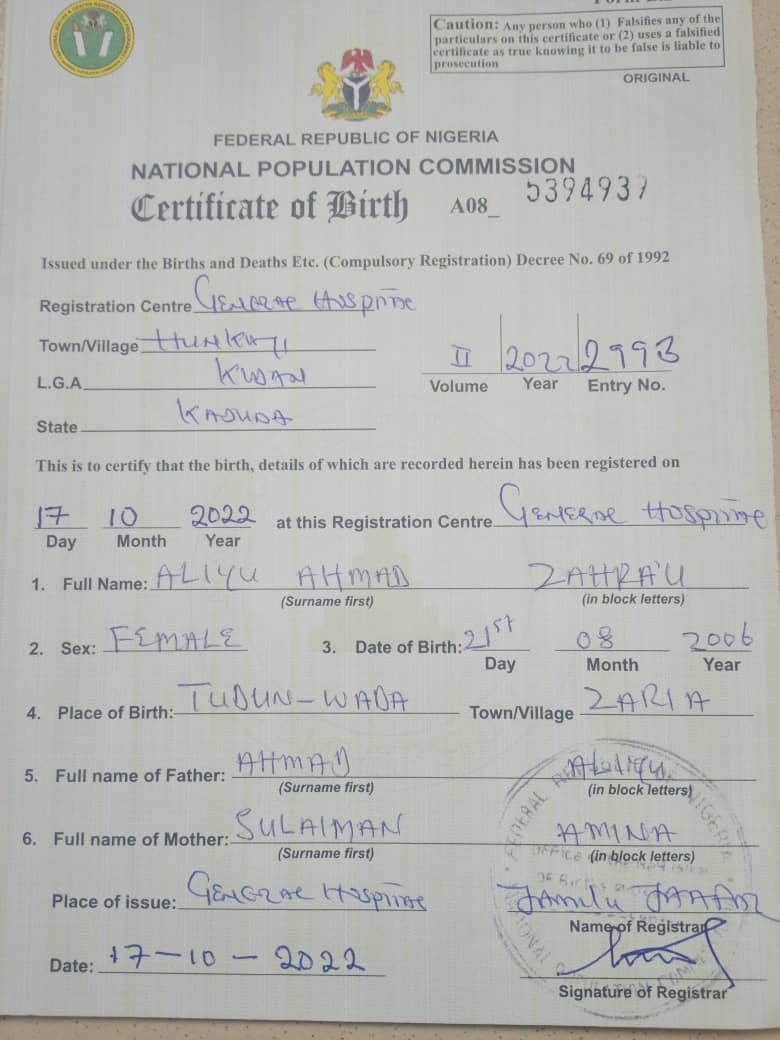 Caution: Any person who (1) Falsifies any of the
particulars on this certificate or (2) uses a falsified
certificate as true knowing it to be false is liable to
prosecution
ORIGINAL
FEDERAL REPUBLIC OF NIGERIA
NATIONAL POPULATION COMMISSION
Certificate of Birth A08_ 5394937
Issued under the Births and Deaths Etc. (Compulsory Registration) Decree No. 69 of 1992
Registration Centre GENERAL HOSPITAL
Town/Village HUNKUYI
L.G.A KUDAN
II 2022 2993
Volume Year Entry No.
State KADUNA
This is to certify that the birth, details of which are recorded herein has been registered on
17 10 2022 at this Registration Centre GENERAL HOSPITAL
Day Month Year
1. Full Name: ALIYU AHMAD ZAHRA'U
(Surname first) (in block letters)
2. Sex: FEMALE 3. Date of Birth: 21st 08 2006
Day Month Year
4. Place of Birth: TUDUN-WADA Town/Village ZARIA
5. Full name of Father: AHMAD ALIYU
(Surname first) (in block letters)
6. Full name of Mother: SULAIMAN AMINA
(Surname first) (in block letters)
Place of issue: GENERAL HOSPITAL Jamilu JAAFAR
Name of Registrar
Date: 17-10-2022
Signature of Registrar